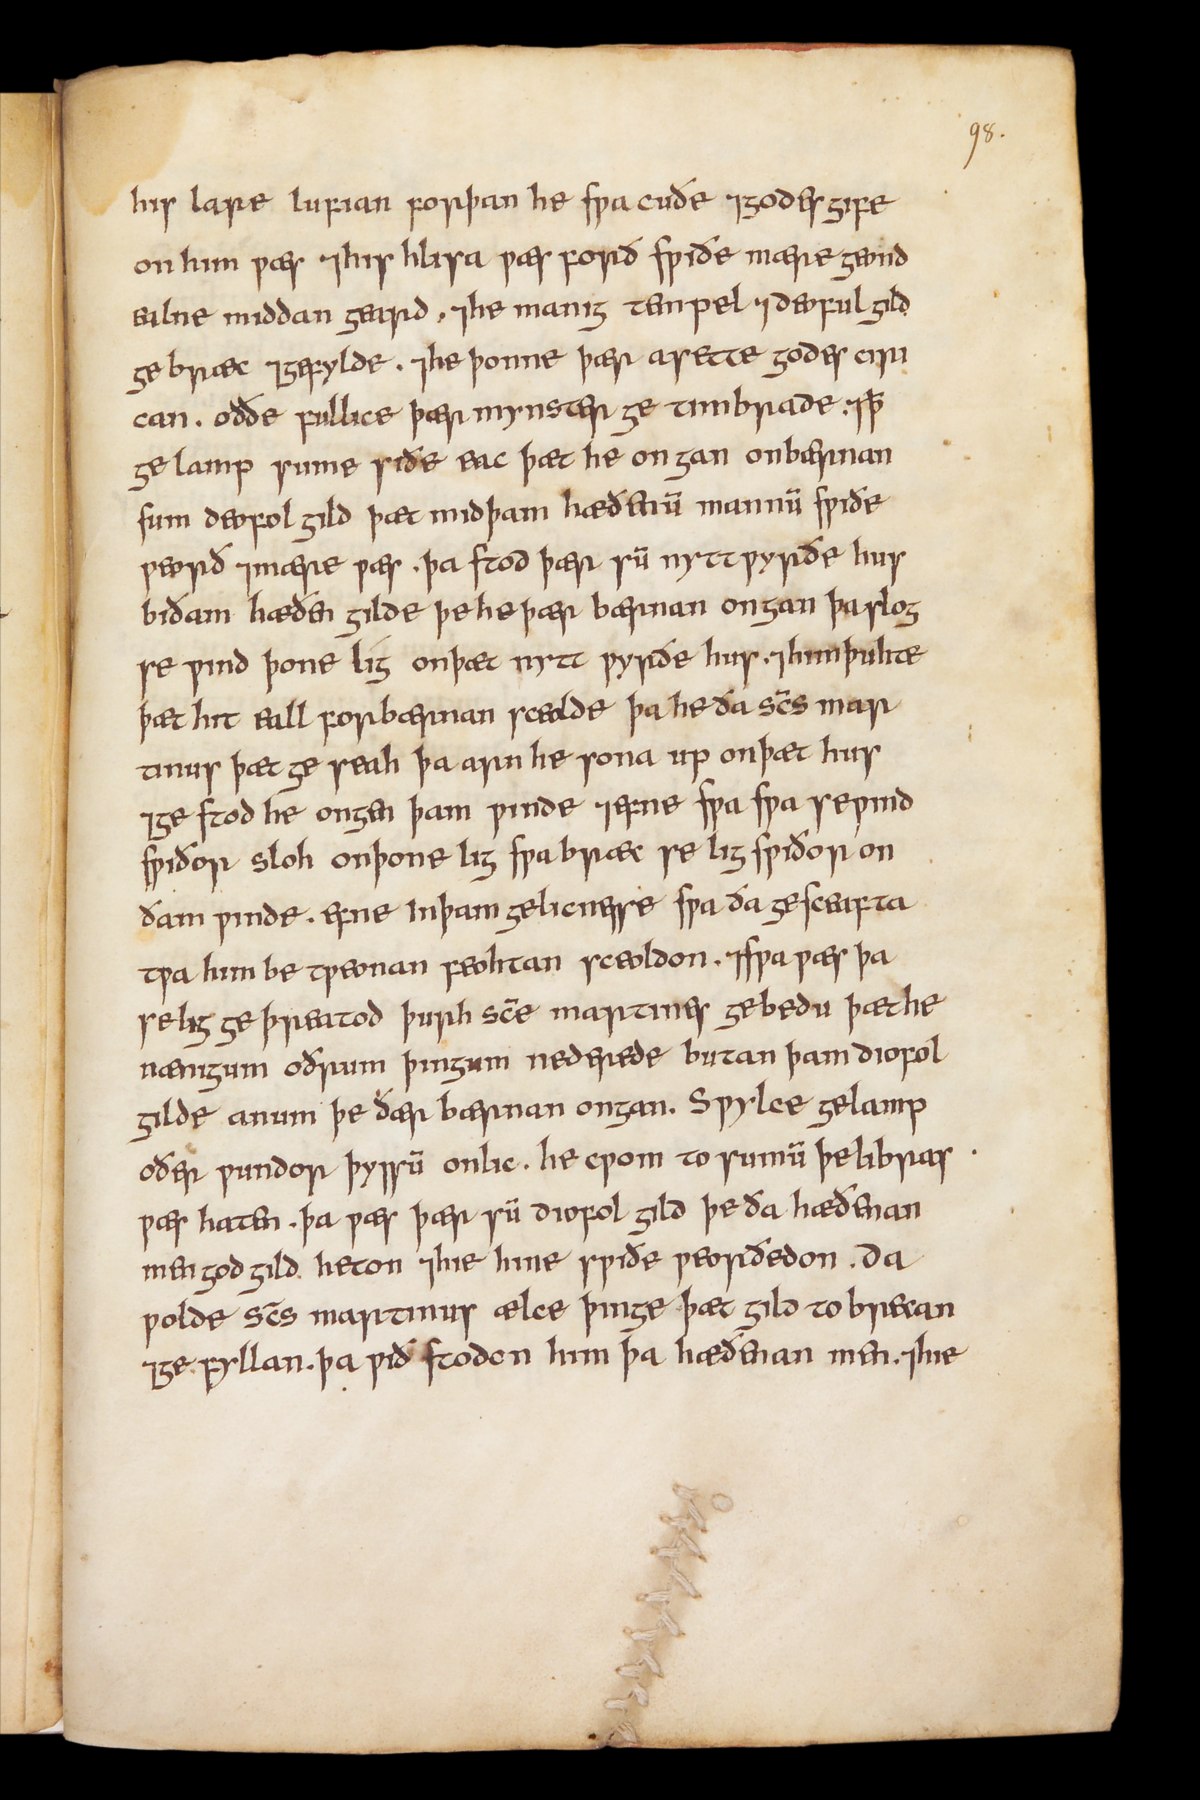 98.
his lare lufian forþan he swa cuðe ⁊godes gife
on him wæs ⁊his hlisa wæs forð swiðe mære geond
ealne middan geard, ⁊he manig tempel ⁊deoful gild
ge bræc ⁊gefylde. ⁊he þonne þær asette godes ciri
can. oððe fullice þær mynster ge timbrade. ⁊ꝥ
ge lamp sume siðe eac þæt he on gan onbærnan
sum deofol gild þæt mid þam hæðenū mannū swiðe
weorð ⁊mære wæs. þa stod þær sū nytt wyrðe hus
bi ðam hæðen gilde þe he þær bærnan on gan þa slog
se wind þone lig on þæt nytt wyrðe hus. ⁊him þuhte
þæt hit eall forbærnan sceolde þa he ða sc̄s mar
tinus þæt ge seah þa arn he sona up on þæt hus
⁊ge stod he ongen þam winde ⁊efne swa swa se wind
swiðor sloh on þone lig swa bræc se lig swiðor on
ðam winde. efne in þam gelicnesse swa ða gesceafta
twa him be tweonan feohtan sceoldon. ⁊swa wæs þa
se lig ge þreatod þurh sc̄e martines gebedu þæt he
nænigum oðrum þingum ne derede butan þam diofol
gilde anum þe ðær bærnan ongan. Swylce gelamp
oðer wundor þyssū onlic. he cwom to sumū þe libras
wæs haten. þa wæs þær sū diofol gild þe ða hæðenan
men god gild heton ⁊hie hine swiðe weorðedon. Ða
wolde sc̄s martinus ælce þinge þæt gild to brecan
⁊ge fyllan. þa wið stodon him þa hæðenan men. ⁊hie